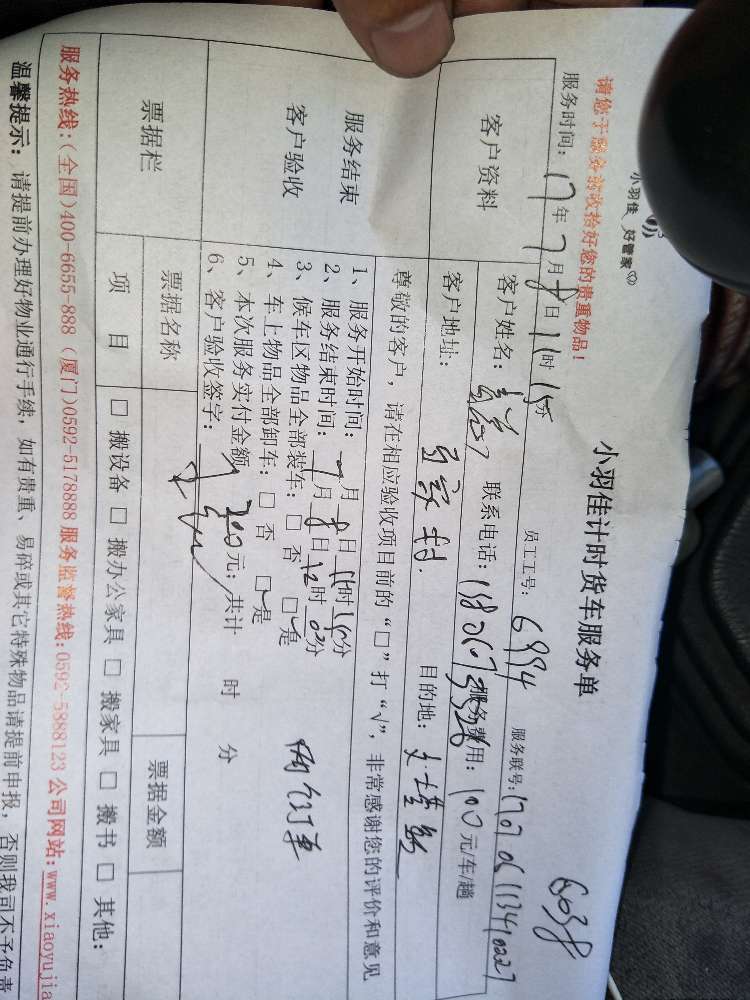 小羽佳 好管家
请您于服务前收拾好您的贵重物品！
小羽佳计时货车服务单
6038
服务时间：17年7月8日11时15分 员工工号：6994 服务联号：
客户资料
客户姓名： 联系电话： 服务费用：100元/车/趟
客户地址： 目的地：
尊敬的客户，请在相应验收项目前的“□”打“√”，非常感谢您的评价和意见
服务结束
客户验收
1、服务开始时间：7月8日11时15分
2、服务结束时间：7月8日12时02分
3、候车区物品全部装车：□ 否 □是
4、车上物品全部卸车：□ 否 □是
5、本次服务实付金额 200元；共计 时 分
6、客户验收签字：
票据栏
票据名称 票据金额
项 目 □ 搬设备 □ 搬办公家具 □ 搬家具 □ 搬书 □ 其他：
服务热线：（全国）400-6655-888（厦门）0592-5178888 服务监督热线：0592-5888123 公司网站：www.xiaoyujia
温馨提示：请提前办理好物业通行手续，如有贵重、易碎或其它特殊物品请提前申报，否则我司不予负责